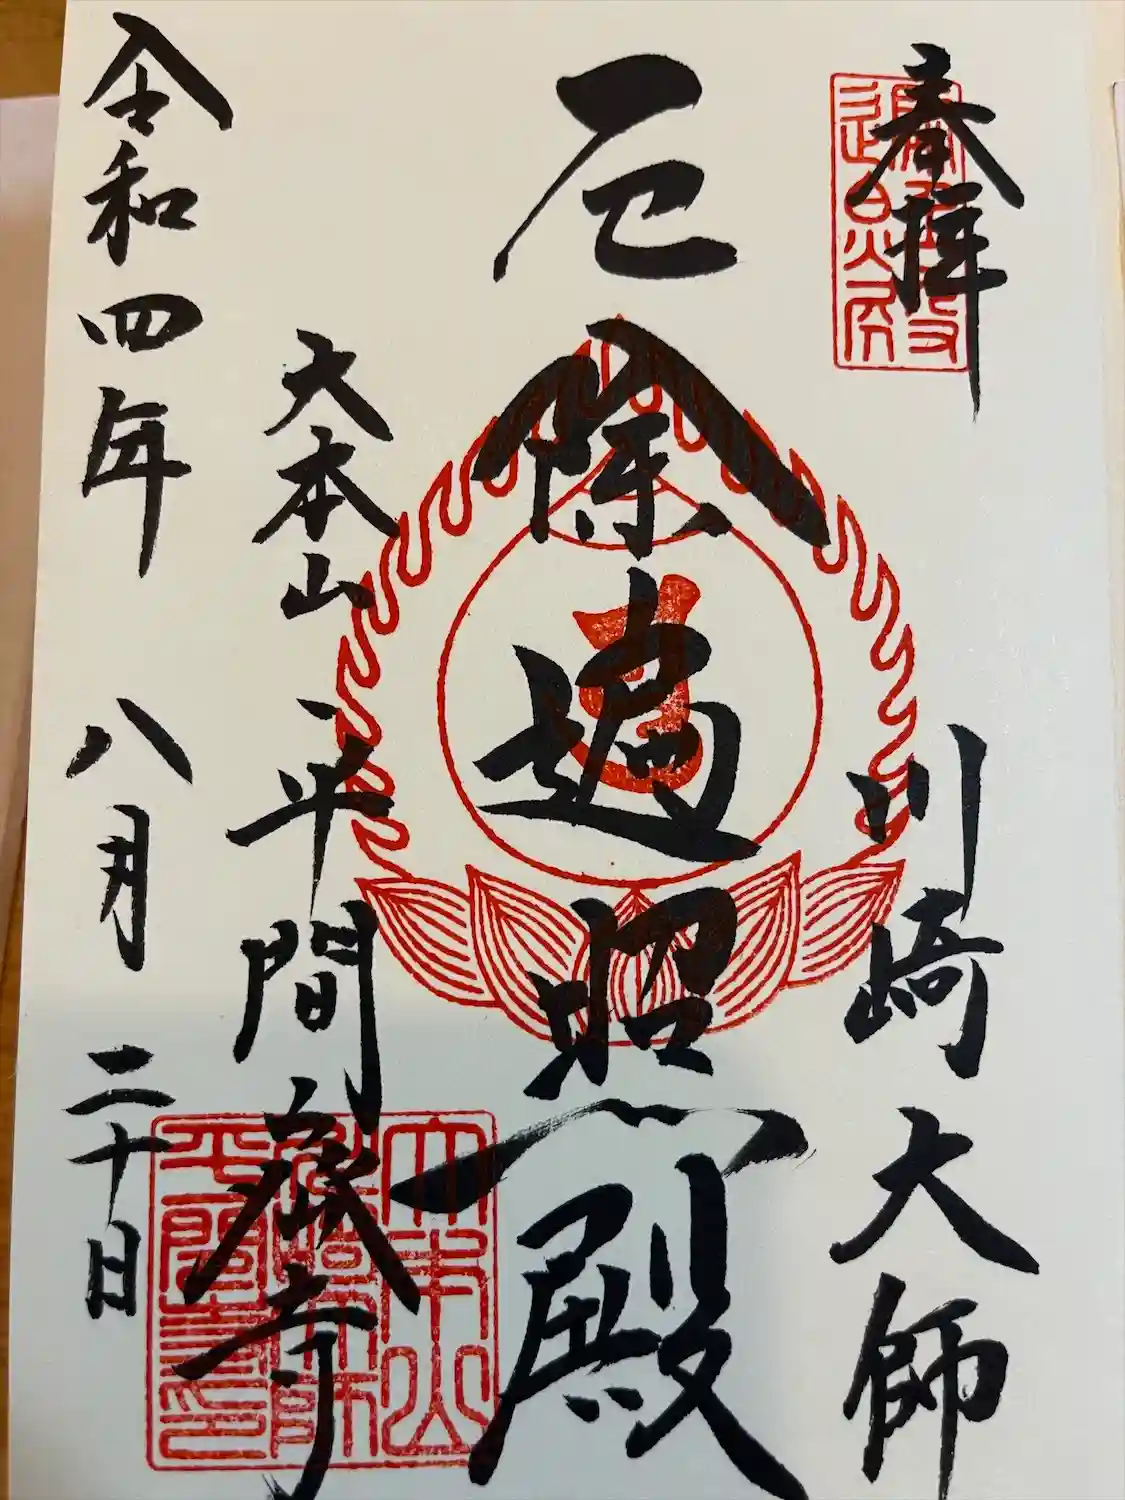 奉拝
川崎大師
厄除遍照殿
大本山
平間寺
令和四年
八月
二十日